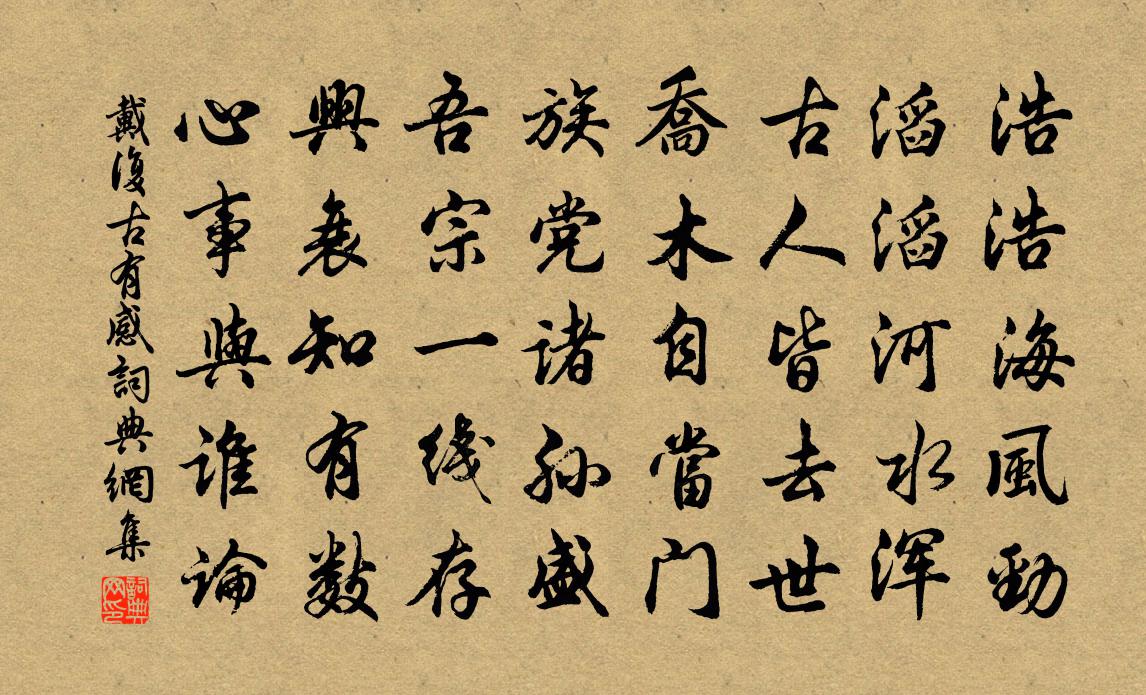 浩浩海風勁
滔滔河水浑
古人皆去世
喬木自當门
族党诸孙盛
吾宗一线存
興衰知有数
心事與谁論
戴復古有感詞典網集
詞典网印